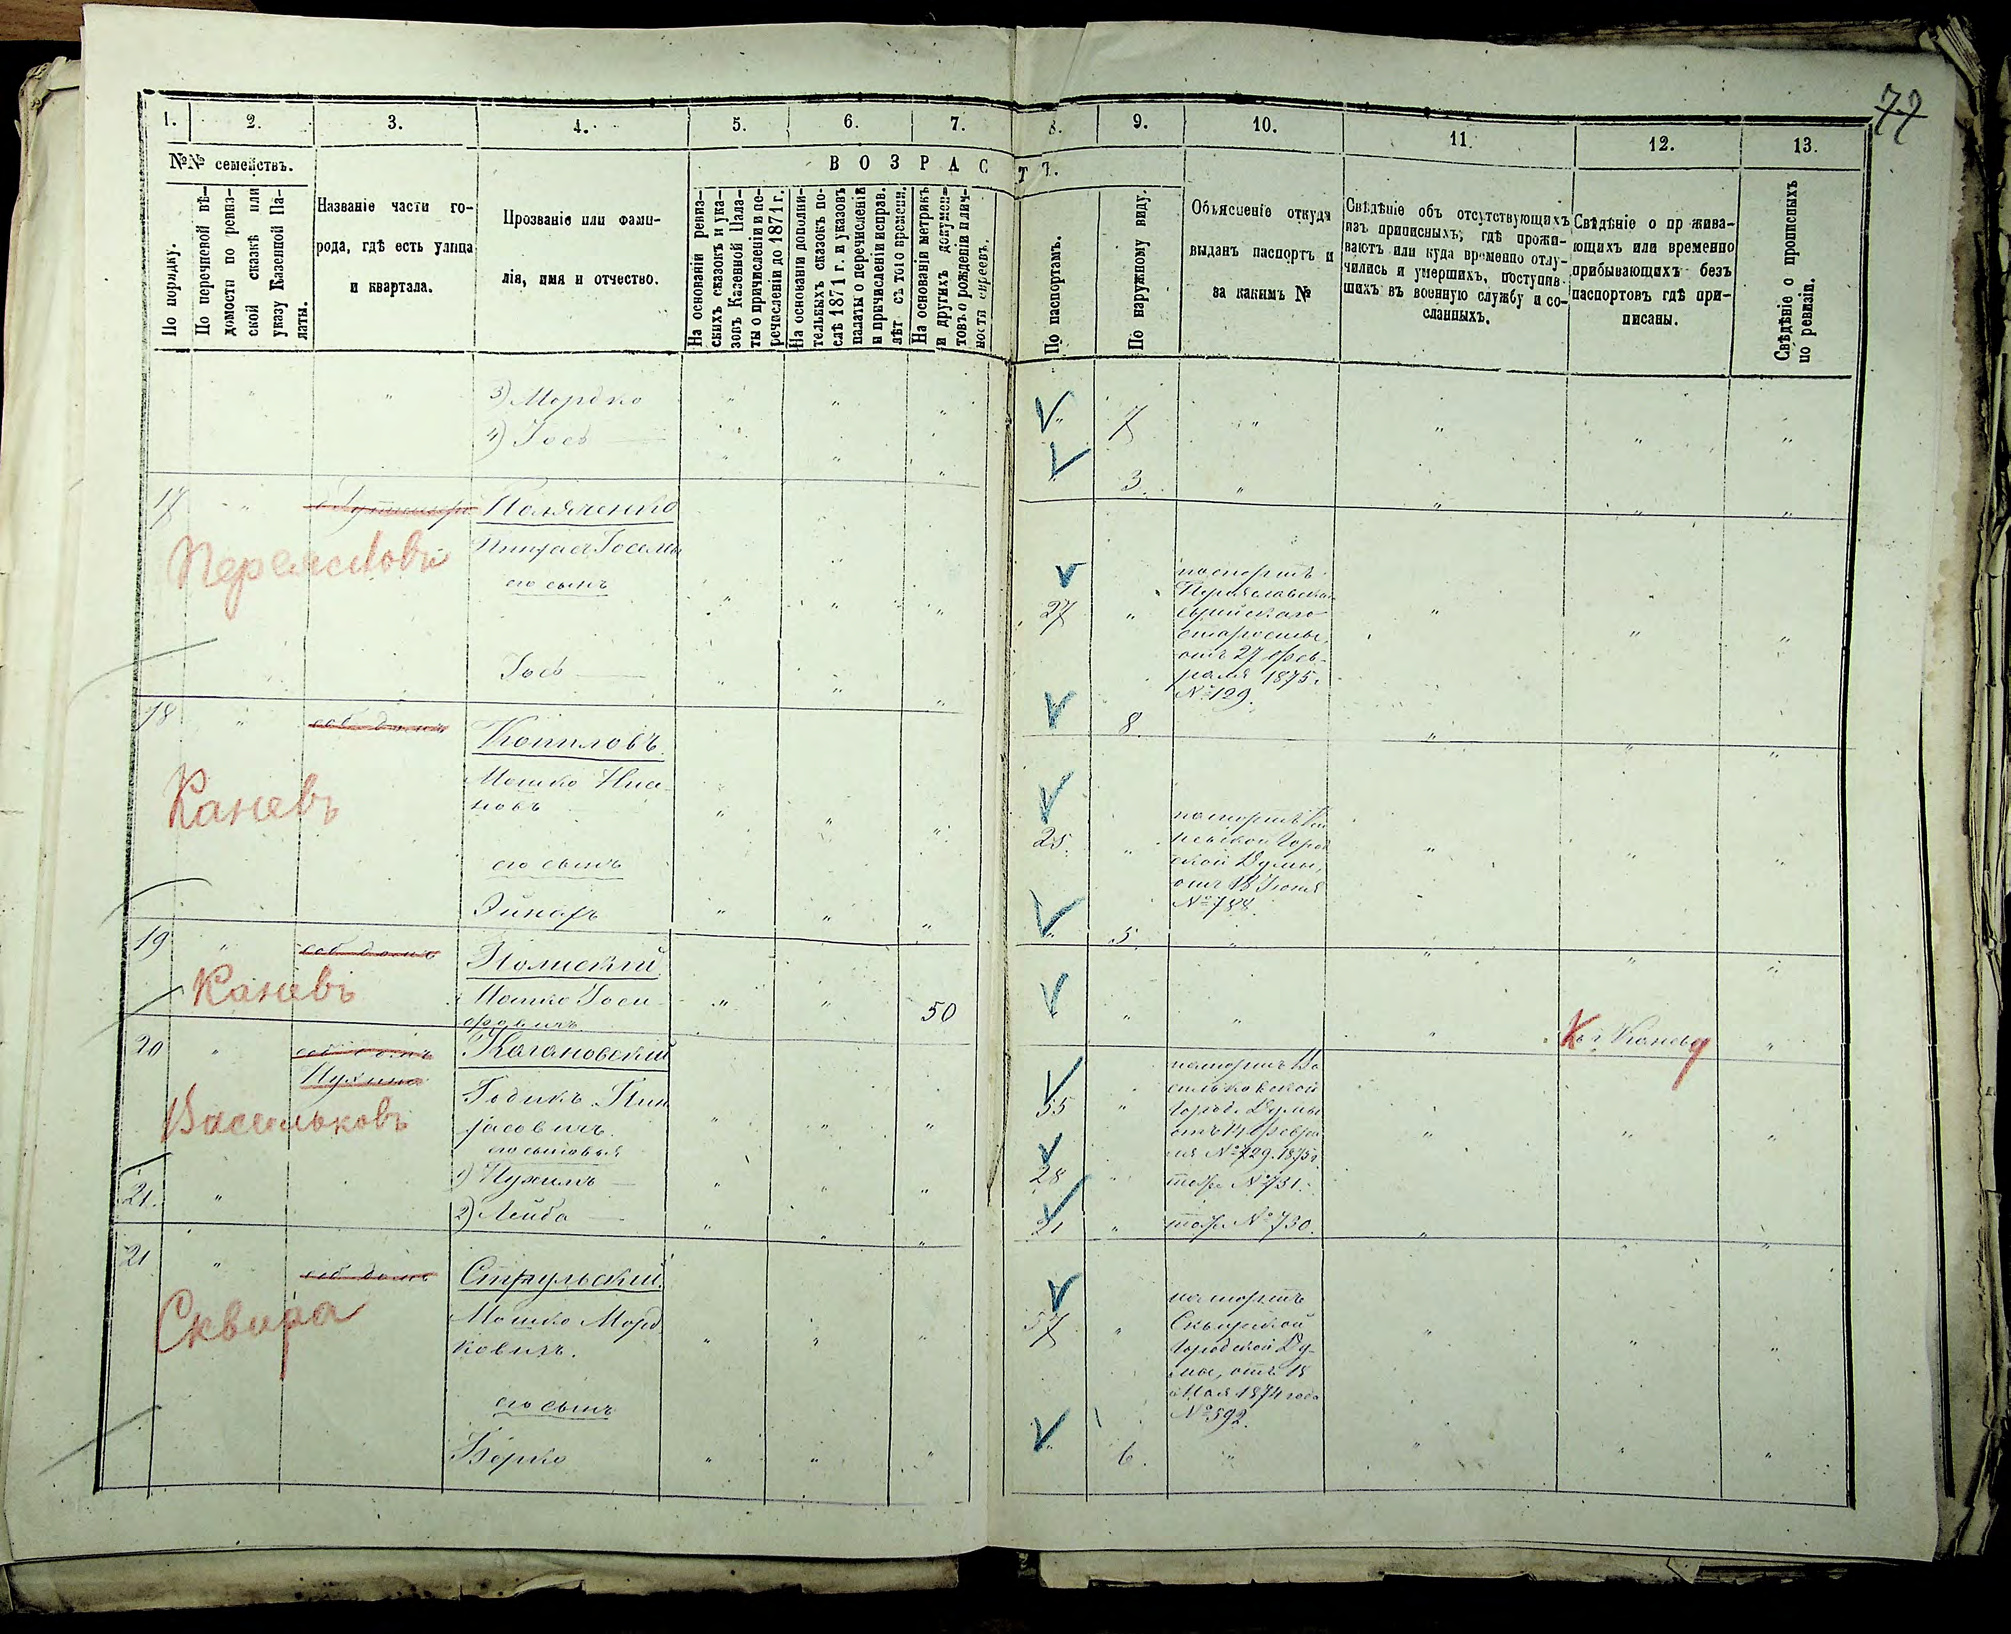 77
1. 2. 3. 4. 5. 6. 7. 8. 9. 10. 11. 12. 13.
№№ семействъ.
ВОЗРАСТЪ.
По порядку.
По перечневой вѣ-
домости по ревиз-
ской сказкѣ или
указу Казенной Па-
латы.
Названіе части го-
рода, гдѣ есть улица
и квартала.
Прозваніе или фами-
лія, имя и отчество.
На основаніи ревиз-
скихъ сказокъ и ука-
зовъ Казенной Пала-
ты о причисленіи и пе-
речисленіи до 1871 г.
На основаніи дополни-
тельныхъ сказокъ по-
слѣ 1871 г. и указовъ
палаты о перечисленіи
и причисленіи исправ.
лѣт съ того времени.
На основаніи метрикъ
и другихъ докумен-
товъ о рожденіи и лич-
ности евреевъ.
По паспортамъ.
По наружному виду.
Объясненіе откуда
выданъ паспортъ и
за какимъ №
Свѣдѣніе объ отсутствующихъ
изъ приписныхъ, гдѣ прожи-
ваютъ или куда временно отлу-
чились и умершихъ, поступив-
шихъ въ военную службу и со-
сланныхъ.
Свѣдѣніе о пр жива-
ющихъ или временно
прибывающихъ безъ
паспортовъ гдѣ при-
писаны.
Свѣдѣніе о прописныхъ
по ревизіи.
3) Мордко 7
4) Іось 3.
17 Поляченко
Переяславъ
Пинхас Іоселев
его сынъ
27
паспортъ
Переяславскаго
еврейскаго
старосты,
отъ 27 фев-
раля 1875 г.
№ 129.
Іось 8
18 соб. домъ Копиловъ
Каневъ
Мошко Ниса-
новъ
25.
паспортъ Ка-
невской Город-
ской Думы,
отъ 18 Іюня
№ 788.
его сынъ
5.
19 соб. домъ
Каневъ
Мошко Госи-
фовичъ
50
Къ г. Каневу
20 соб. домъ Кагановскій
Нухима
Васильковъ
Годикъ Пин-
хасовичъ.
55
паспортъ Ва-
сильковской
Город. Думы
отъ 14 Февра-
ля № 729. 1875 г.
его сыновья
1) Нухимъ 28 тоже № 731.
21. 2) Лейба 21 тоже № 730.
21 соб. домъ
Сквира
Мошко Морд-
ковичъ.
57
паспортъ
Сквирской
Городской Ду-
мы, отъ 18
Мая 1874 года
№ 592.
его сынъ
Берко 6.